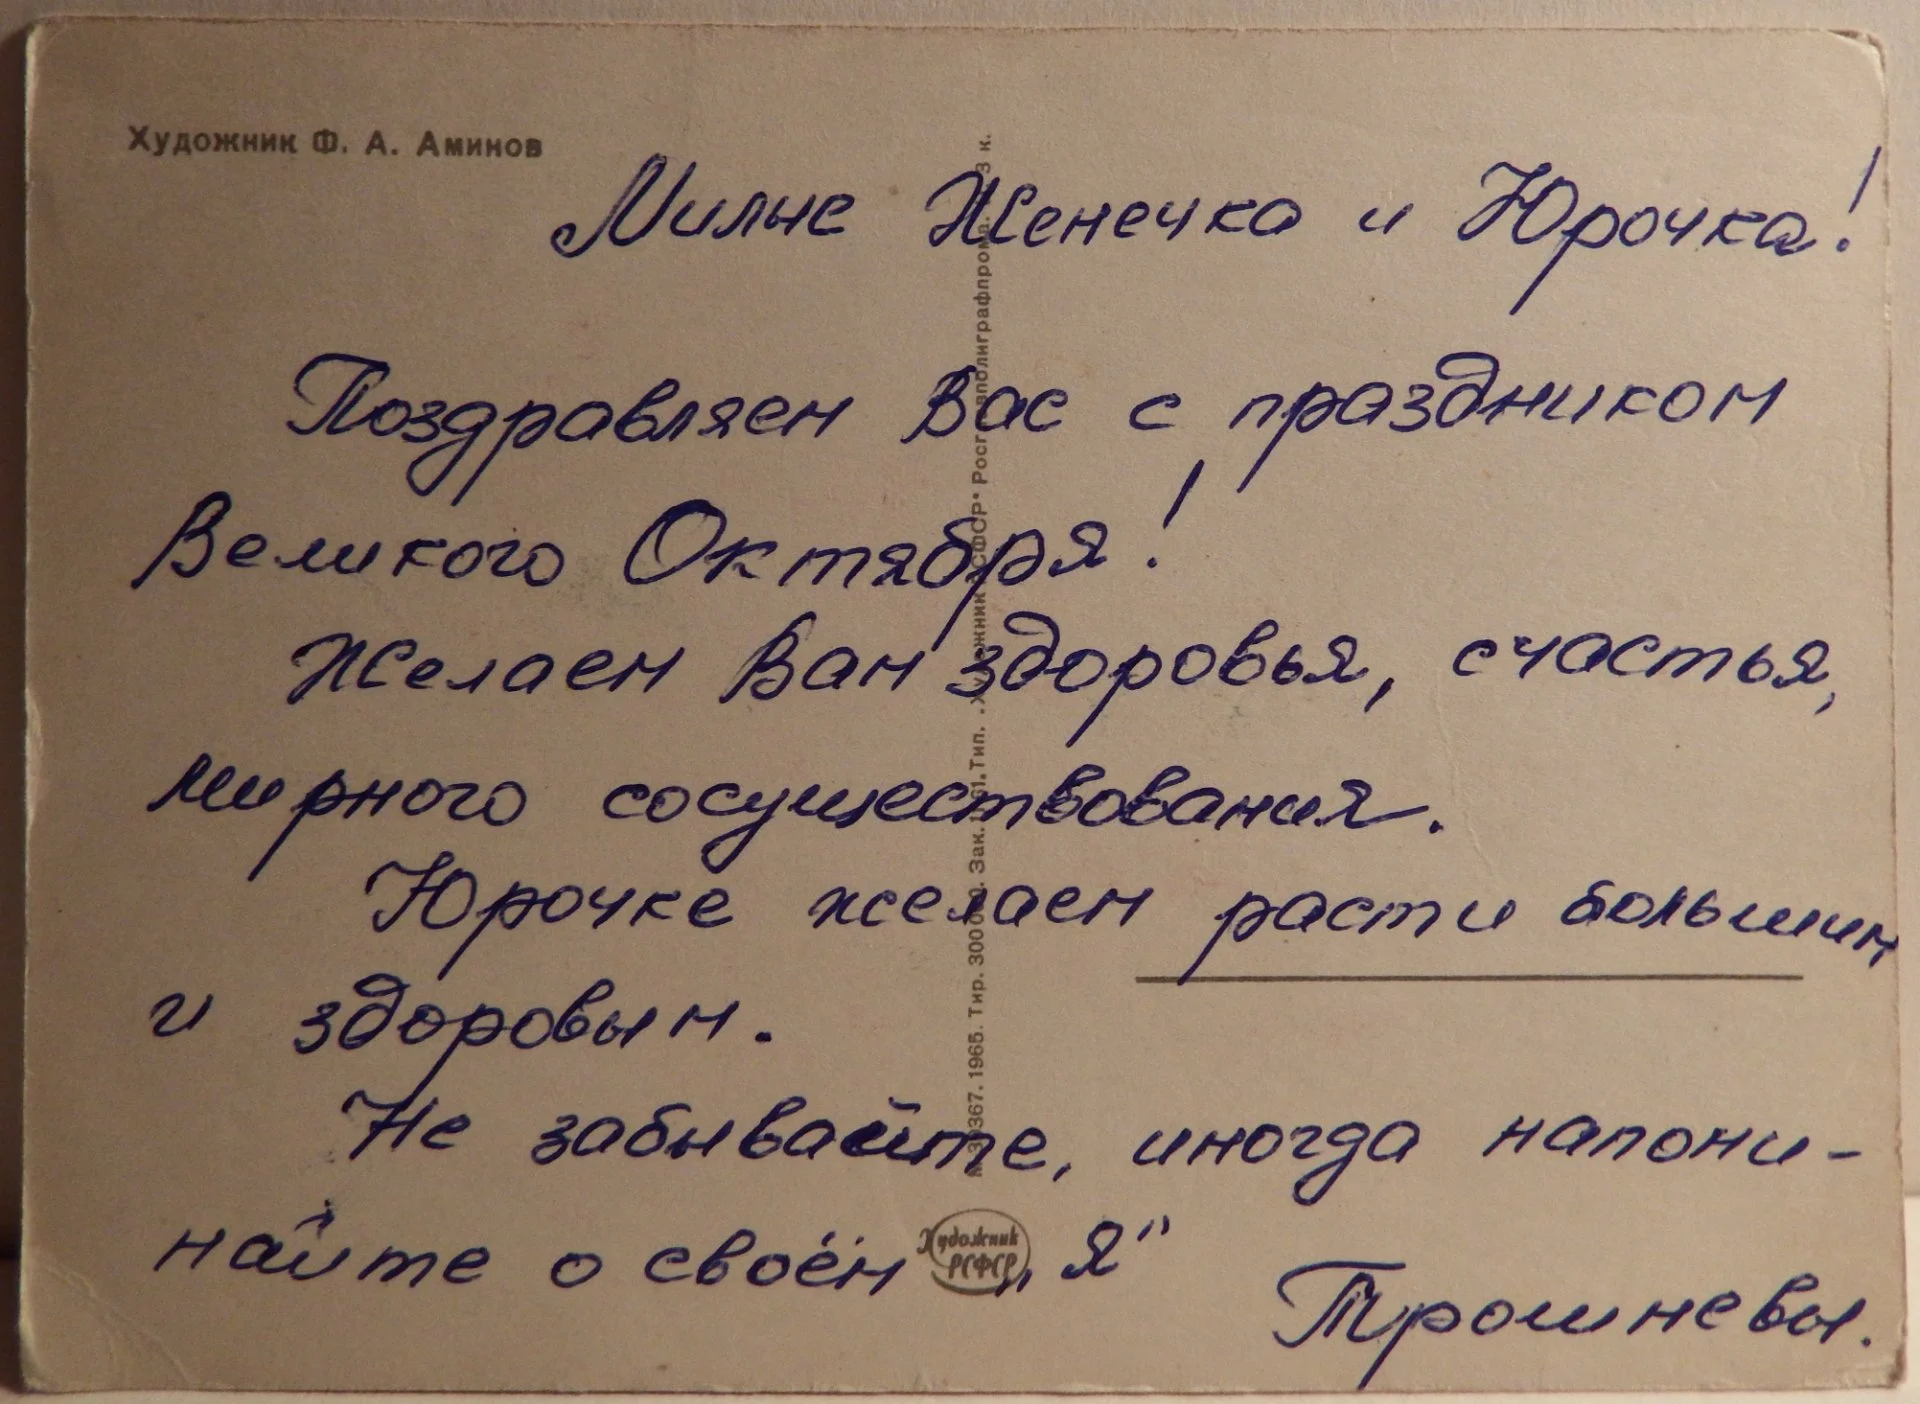 Художник Ф. А. Аминов
Милые Женечка и Юрочка!
Поздравляем Вас с праздником
Великого Октября!
Желаем Вам здоровья, счастья,
мирного сосуществования.
Юрочке желаем расти большим
и здоровым.
Не забывайте, иногда напоми-
найте о своём „Я"
Трошневы.
1965. Тир. 300 Зак. Тип. „Художник РСФСР" 3 к.
Художник
РСФСР